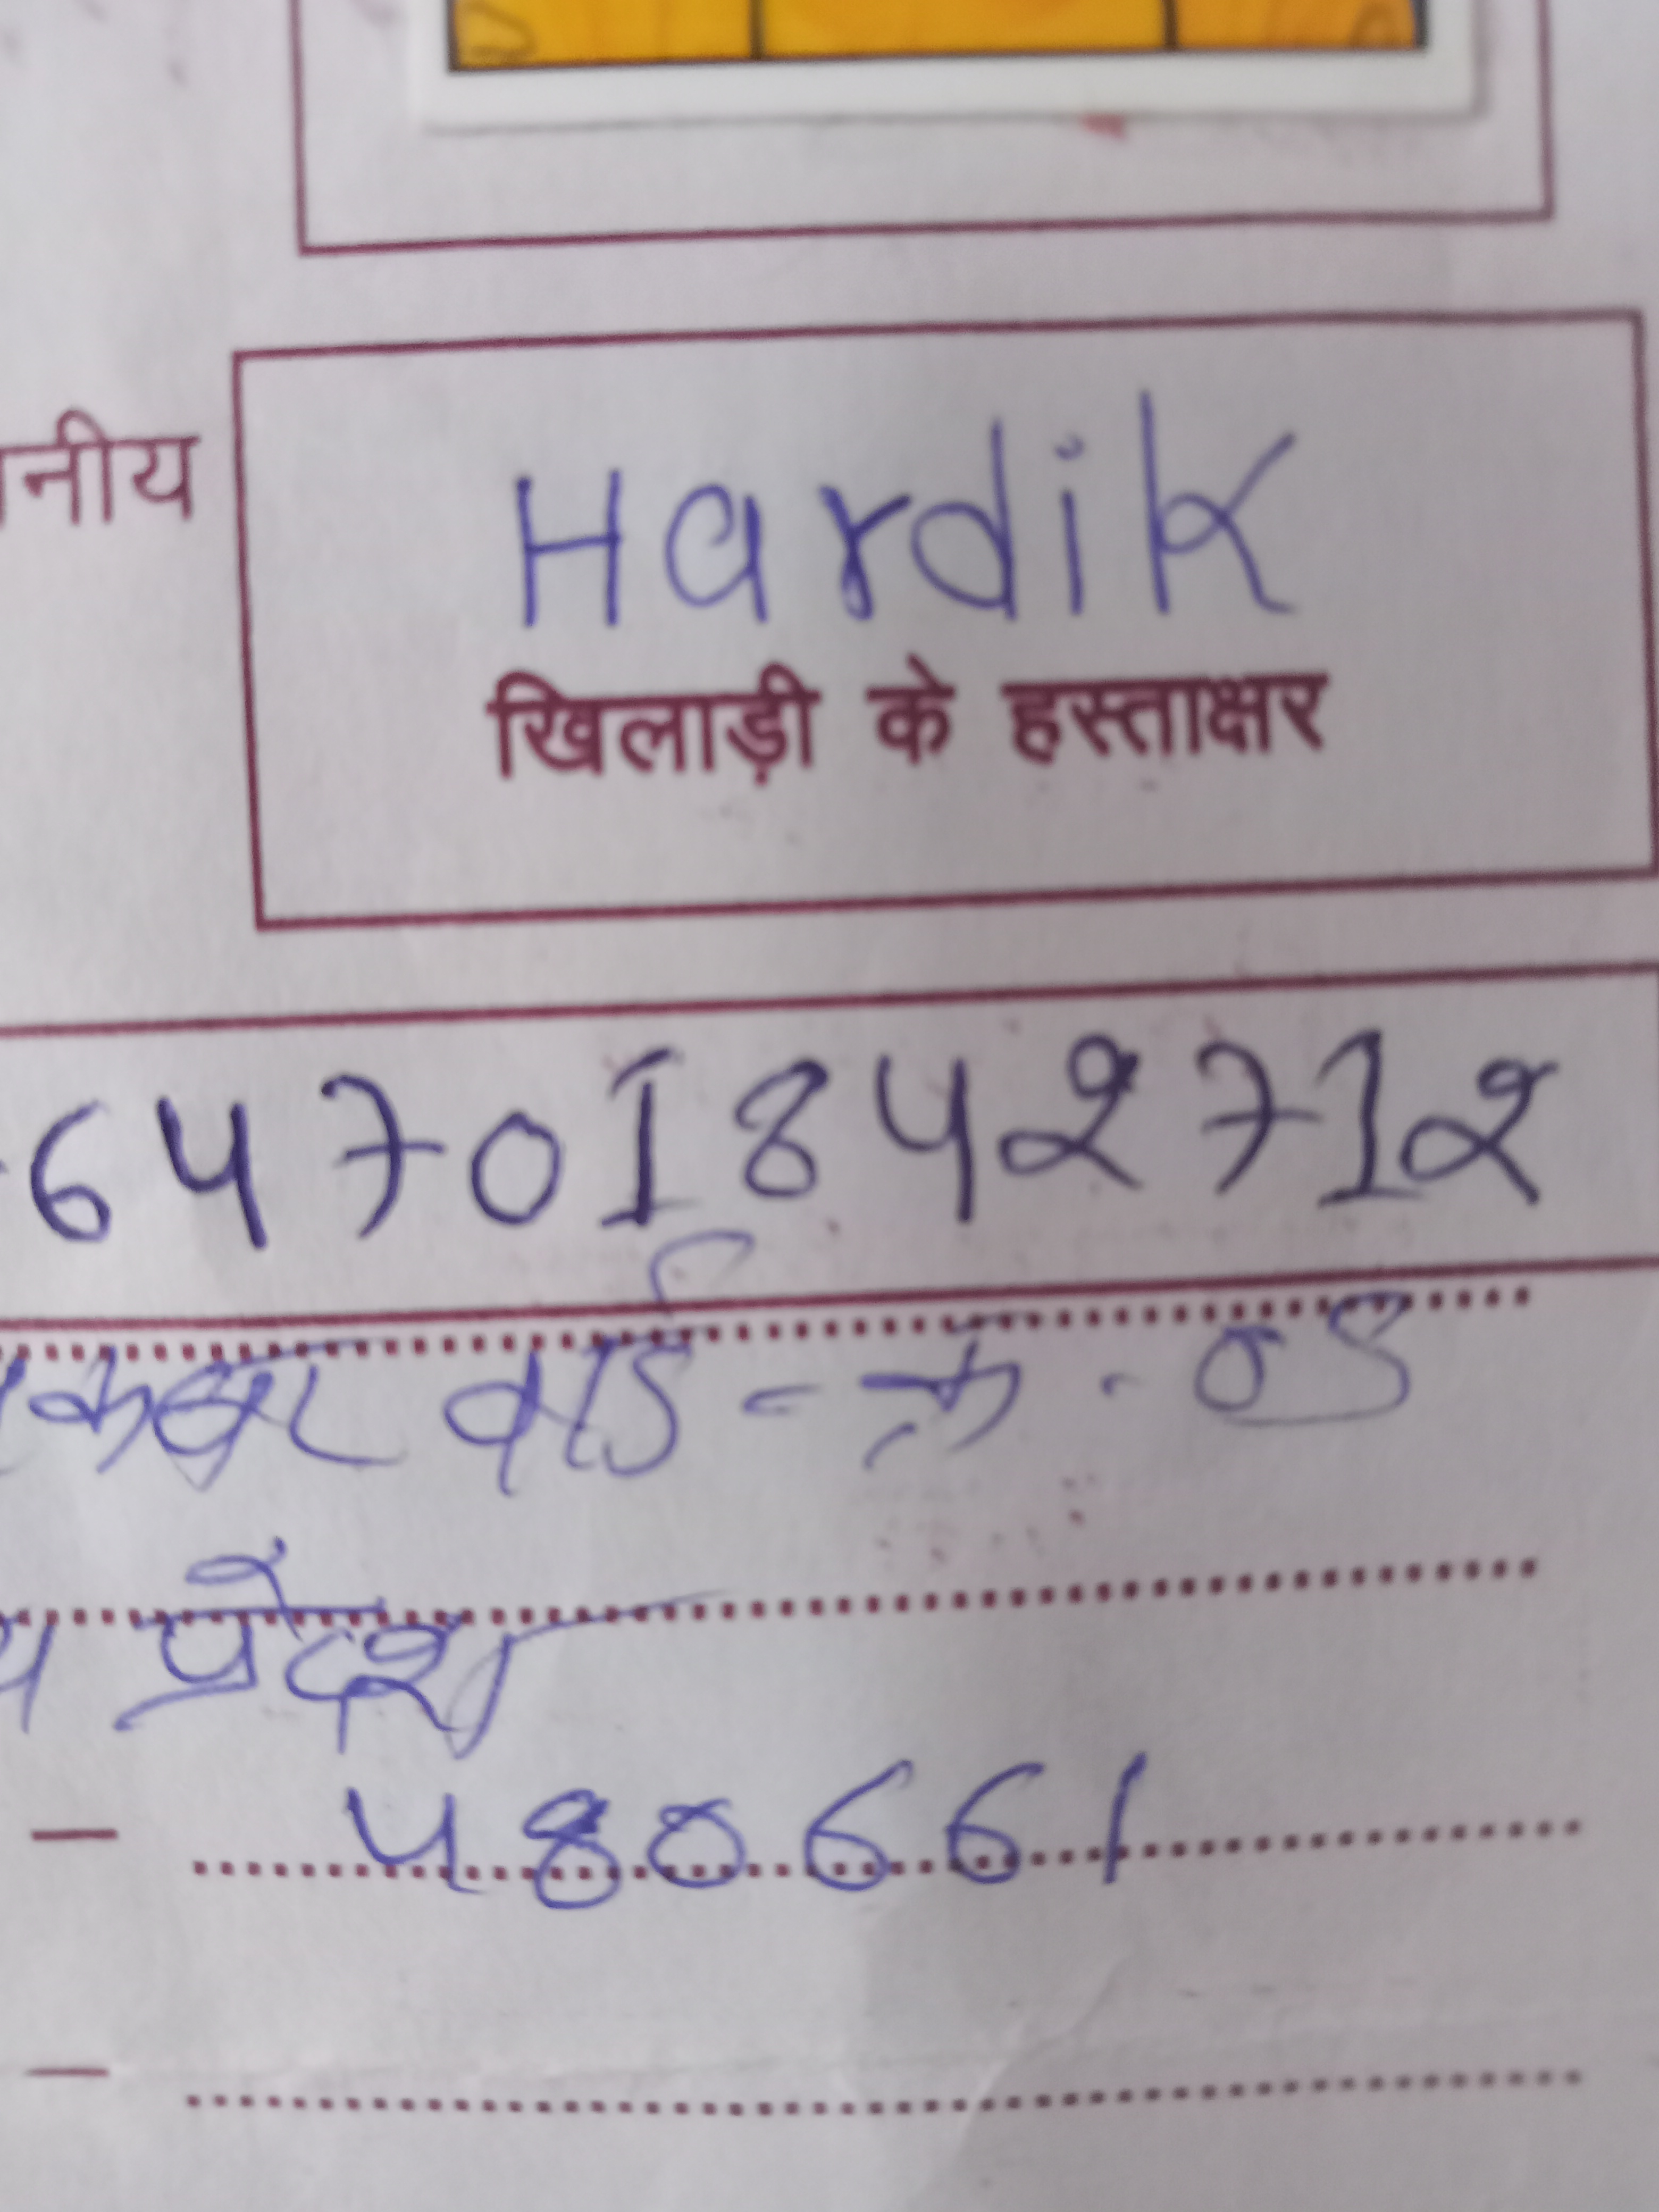 नीय
Hardik
खिलाड़ी के हस्ताक्षर
64701842712
वार्ड - क्र. 05
प्रदेश
480661